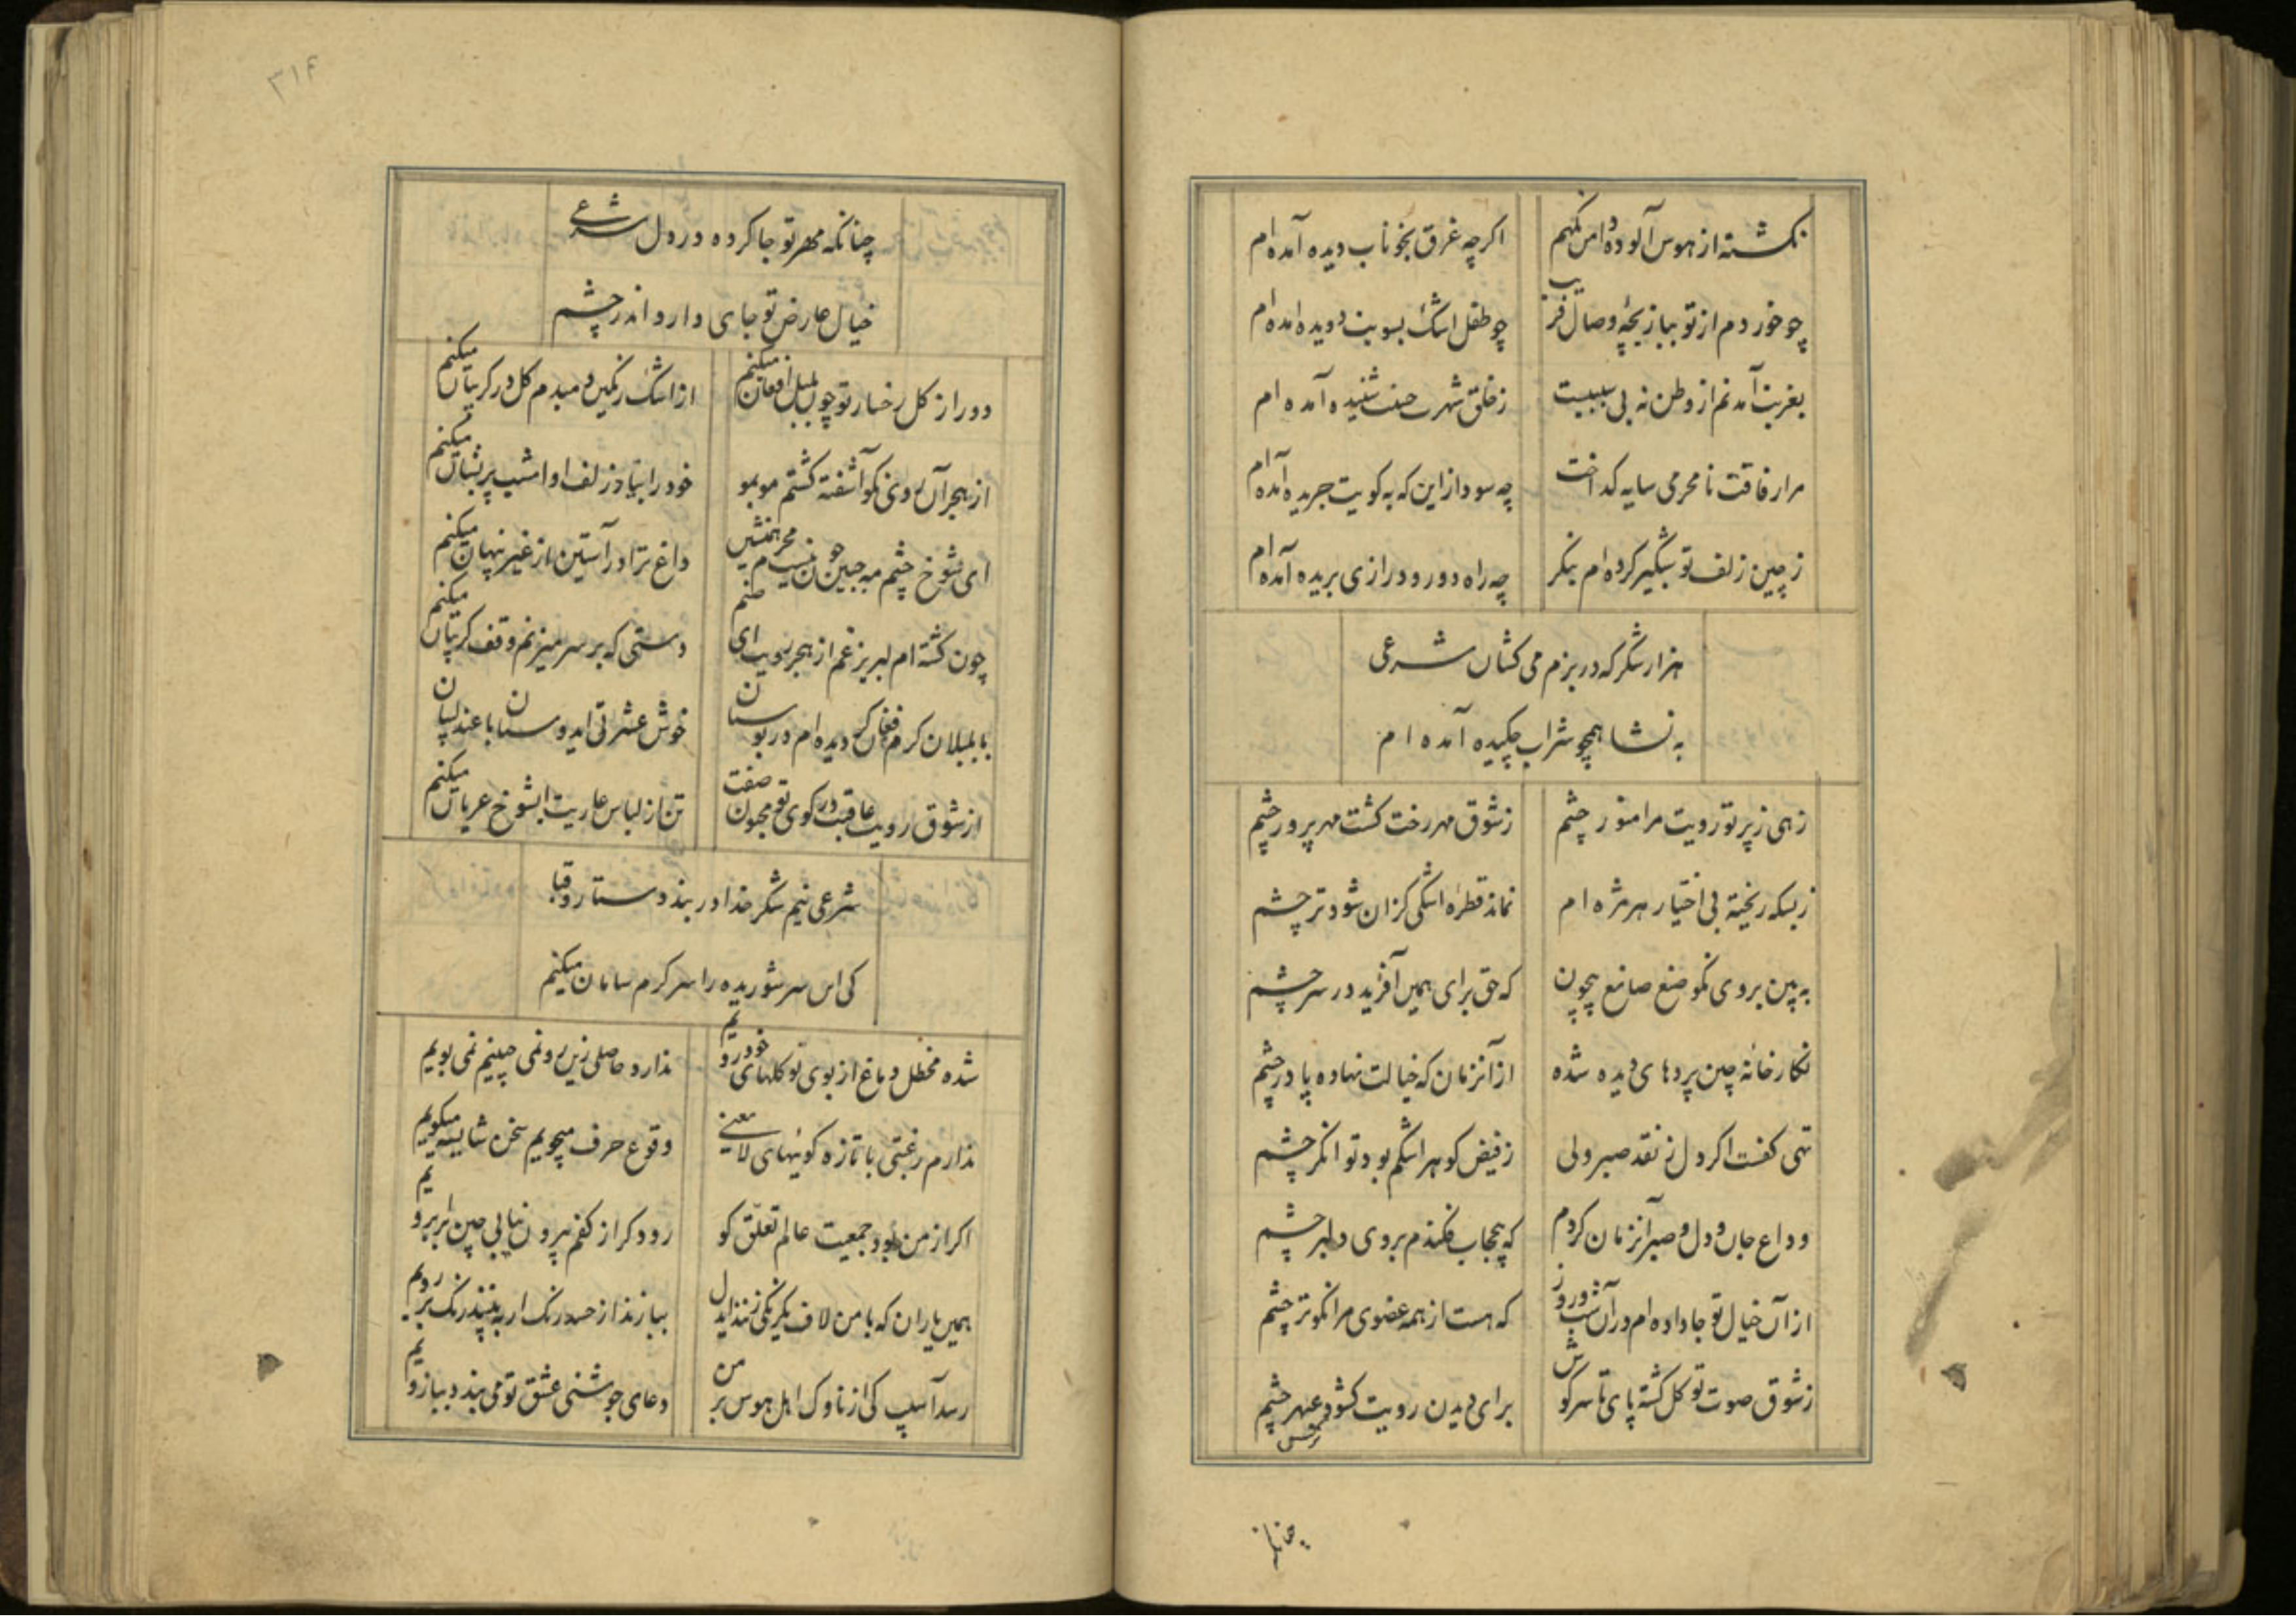 نگشته از هوس آلوده دامن نگهم اگرچه غرق بخوناب دیده آمده‌ام
چو خوردم از تو ببازیچهٔ وصال فریب چو طفل اشک بسویت دویده آمده‌ام
بغربت آمدنم از وطن نه بی سببیست ز خلق شهرت حسنت شنیده آمده ام
مرا رفاقت نامحرمی سایه گداخت چه سود ازاین که به کویت جریده آمده‌ام
ز چین زلف تو شبگیر کرده‌ام بنگر چه راه دور و درازی بریده آمده‌ام
هزار شکر که در بزم می کشان شرعی
به نشا همچو شراب چکیده آمده ام
زهی ز پرتو رویت مرا منور چشم ز شوق مهر رخت گشت مهرپرور چشم
ز بسکه ریخته بی اختیار هر مژه ام نماند قطره اشکی کزان شود تر چشم
به بین بروی نکو صنع صانع بیچون که حق برای همین آفرید در سر چشم
نگارخانهٔ چین پردهای دیده شده از آنزمان که خیالت نهاده پا در چشم
تهی کفست اگر دل ز نقد صبر ولی ز فیض گوهر اشکم بود توانگر چشم
وداع جان و دل و صبر آنزمان کردم که بیحجاب فکندم بروی دلبر چشم
از آن خیال تو جا داده‌ام در آن شب و روز که هست از همه عضوی مرا نکوتر چشم
ز شوق صوت تو گل گشته پای تا سر گوش برای دیدن رویت گشود عبهر چشم
نرگس
چنانکه
۳۱۴
چنانکه مهر تو جا کرده در دل شرعی
خیال عارض تو جای دارد اندر چشم
دور از گل رخسار تو چون بلبل افغان میکنم از اشک رنگین دمبدم گل در گریبان میکنم
از هجر آن روی نکو آشفته گشتم موبمو خود را بیاد زلف او امشب پریشان میکنم
ای شوخ چشم مه جبین چون نیست محرم همنشین داغ ترا در آستین از غیر پنهان میکنم
چون گشته‌ام لبریز غم از هجر رویت ای صنم دستی که بر سر میزنم وقف گریبان میکنم
با بلبلان گرم فغان گر دیده‌ام در بوستان خوش عشرتی ای دوستان با عندلیبان
از شوق رویت عاقبت در کوی تو مجنون صفت تن از لباس عاریت ایشوخ عریان میکنم
شرعی نیم شکر خدا در بند دستار و قبا
کی این سر شوریده را سرگرم سامان میکنم
شده مختل دماغ از بوی تو گلهای خودرویم ندارد حاصلی زین رو نمی چینیم نمی بویم
ندارم رغبتی با تازه گوئیهای لامعنی وقوع حرف میجویم سخن شایسته میگویم
اگر از من بود جمعیت عالم تعلق کو رود گر از کفم بیرون نیابی چین بر ابرویم
همین یاران که با من لاف یکرنگی زنند از دل ببازند از حسد رنگ ار به بینند رنگ بر رویم
رسد آسیب کی از ناوک اهل هوس بر من دعای جوشنی عشق تو می بندد ببازویم